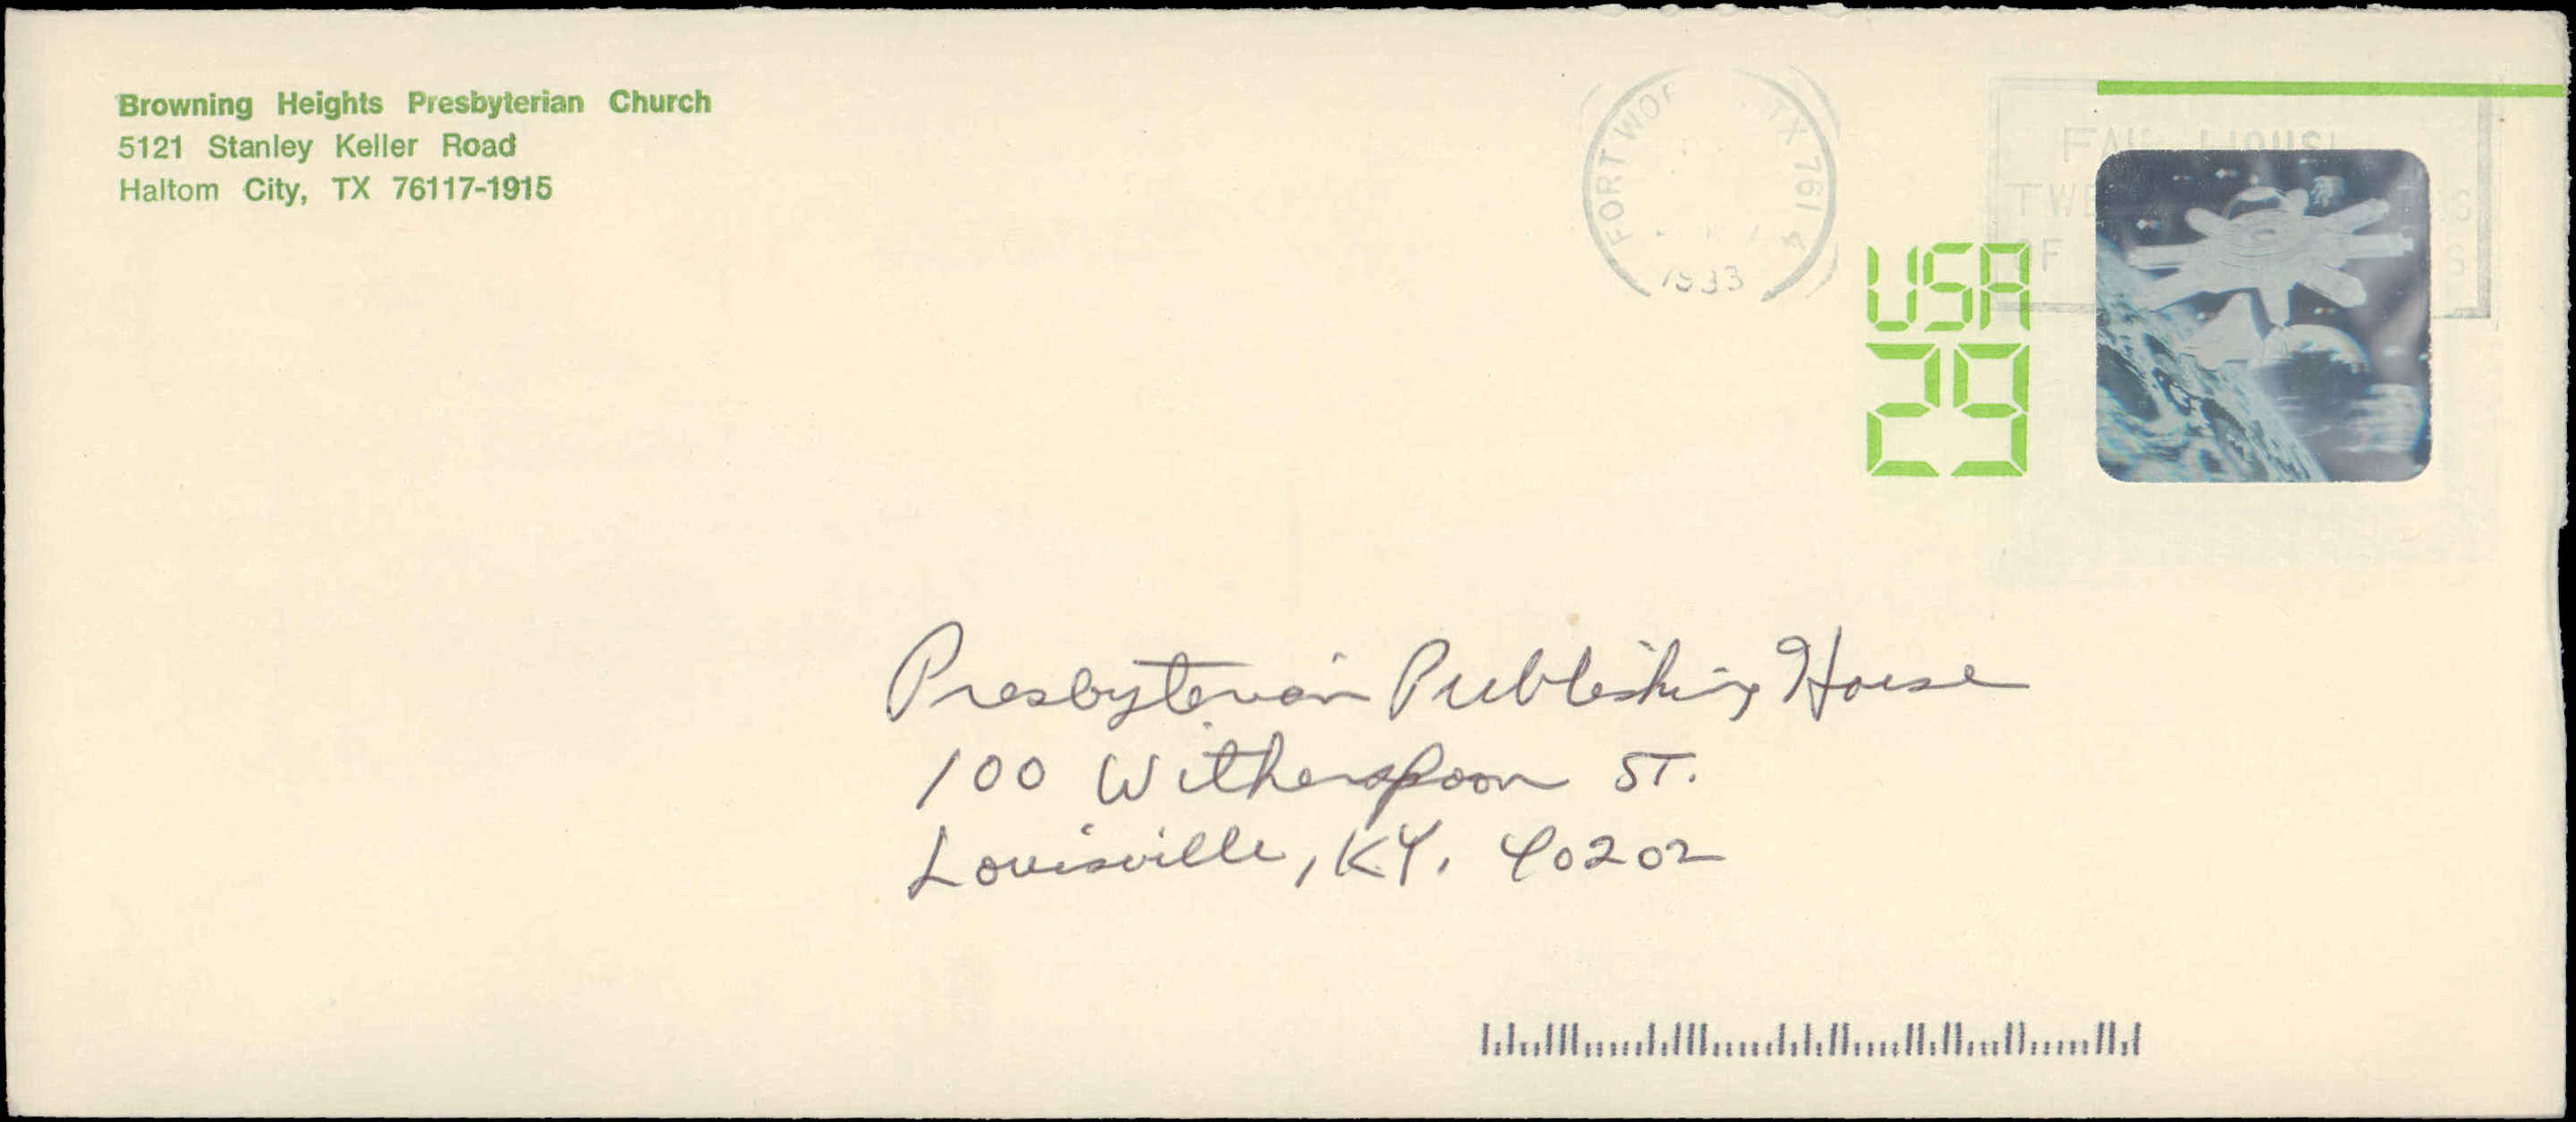 Browning Heights Presbyterian Church
5121 Stanley Keller Road
Haltom City, TX 76117-1915
FORT WOR TX 761
USA
29
Presbyterian Publishing House
100 Witherspoon ST.
Louisville, KY. 40202